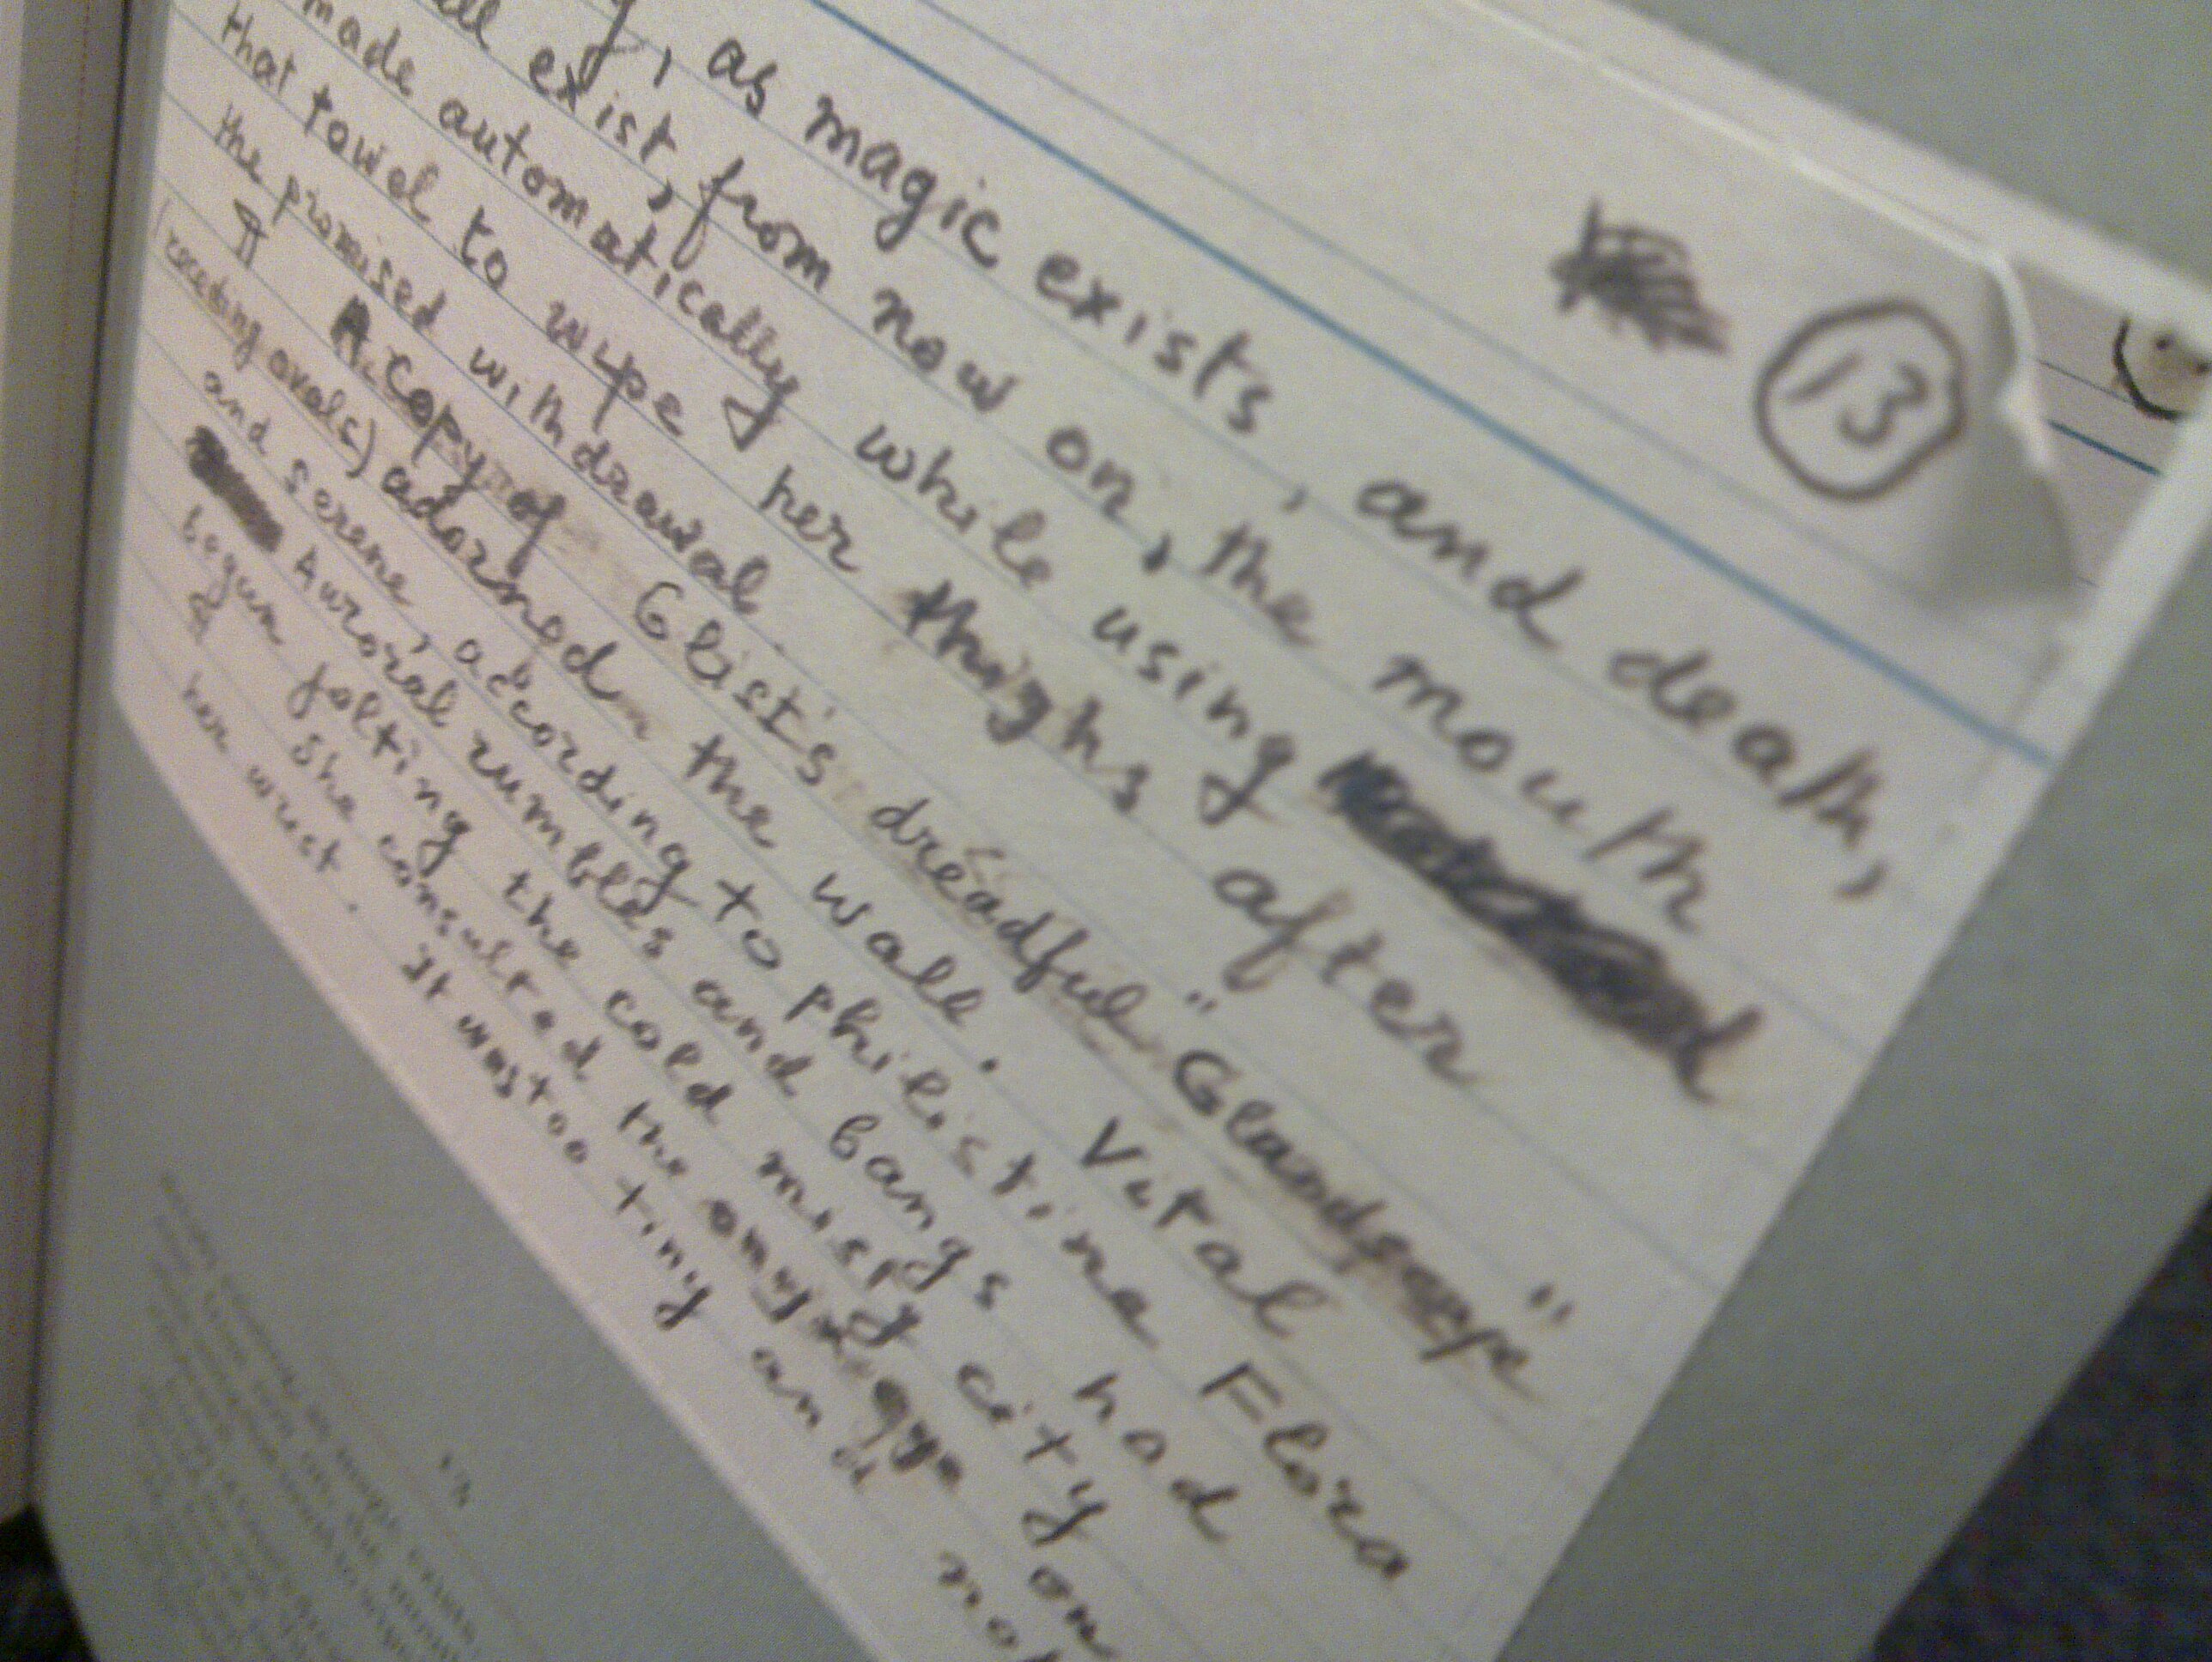 13
, as magic exists, and death,
exist, from now on, the mouth
made automatically while using
that towel to wipe her thighs after
the promised withdrawal.
A copy of Glist's dreadful "Glandscape"
(receding ovals) adorned the wall. Vital
and serene, according to philistine Flora
Auroral rumbles and bangs had
begun jolting the cold misty city
She consulted the onyx eye on
her wrist. It was too tiny and not